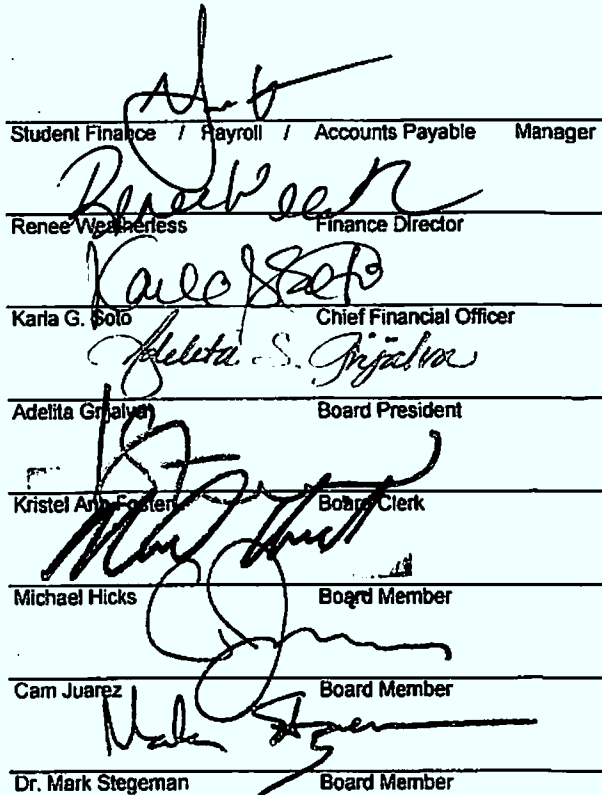 Student Finance / Payroll / Accounts Payable Manager
Renee Weatherless Finance Director
Karla G. Soto
Karla G. Soto Chief Financial Officer
Adelita S. Grijalva
Adelita Grijalva Board President
Kristel Ann Foster Board Clerk
Michael Hicks Board Member
Cam Juarez Board Member
Mark Stegeman
Dr. Mark Stegeman Board Member